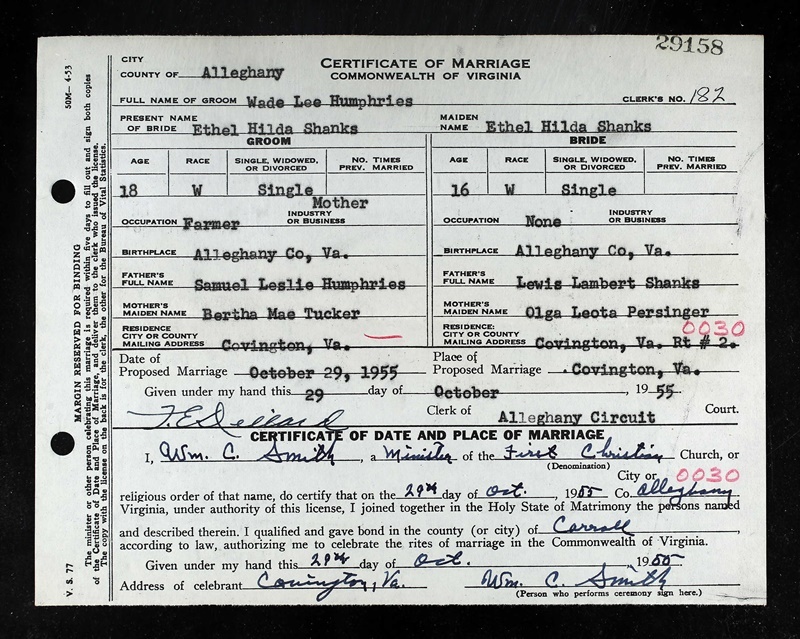 29158
CITY
COUNTY OF Alleghany
CERTIFICATE OF MARRIAGE
COMMONWEALTH OF VIRGINIA
FULL NAME OF GROOM Wade Lee Humphries CLERK'S NO. 182
PRESENT NAME OF BRIDE Ethel Hilda Shanks MAIDEN NAME Ethel Hilda Shanks
GROOM BRIDE
AGE RACE SINGLE, WIDOWED, OR DIVORCED NO. TIMES PREV. MARRIED AGE RACE SINGLE, WIDOWED, OR DIVORCED NO. TIMES PREV. MARRIED
18 W Single 16 W Single
Mother
OCCUPATION Farmer INDUSTRY OR BUSINESS OCCUPATION None INDUSTRY OR BUSINESS
BIRTHPLACE Alleghany Co, Va. BIRTHPLACE Alleghany Co, Va.
FATHER'S FULL NAME Samuel Leslie Humphries FATHER'S FULL NAME Lewis Lambert Shanks
MOTHER'S MAIDEN NAME Bertha Mae Tucker MOTHER'S MAIDEN NAME Olga Leota Persinger
0030
RESIDENCE CITY OR COUNTY MAILING ADDRESS Covington, Va. RESIDENCE: CITY OR COUNTY MAILING ADDRESS Covington, Va. Rt # 2.
Date of Proposed Marriage October 29, 1955 Place of Proposed Marriage Covington, Va.
Given under my hand this 29 day of October, 1955
F.E. Dillard Clerk of Alleghany Circuit Court.
CERTIFICATE OF DATE AND PLACE OF MARRIAGE
I, Wm. C. Smith, a Minister of the First Christian Church, or
(Denomination)
City or 0030
religious order of that name, do certify that on the 29th day of Oct., 1955 Co. Alleghany
Virginia, under authority of this license, I joined together in the Holy State of Matrimony the persons named
and described therein. I qualified and gave bond in the county (or city) of Carroll
according to law, authorizing me to celebrate the rites of marriage in the Commonwealth of Virginia.
Given under my hand this 29th day of Oct. 1955
Address of celebrant Covington, Va. Wm. C. Smith
(Person who performs ceremony sign here.)
50M—4-53
V. S. 77
MARGIN RESERVED FOR BINDING
The minister or other person celebrating this marriage is required within five days to fill out and sign both copies
of the Certificate of Date and Place of Marriage, and deliver them to the clerk who issued the license.
The copy with the license on the back is for the clerk, the other for the Bureau of Vital Statistics.